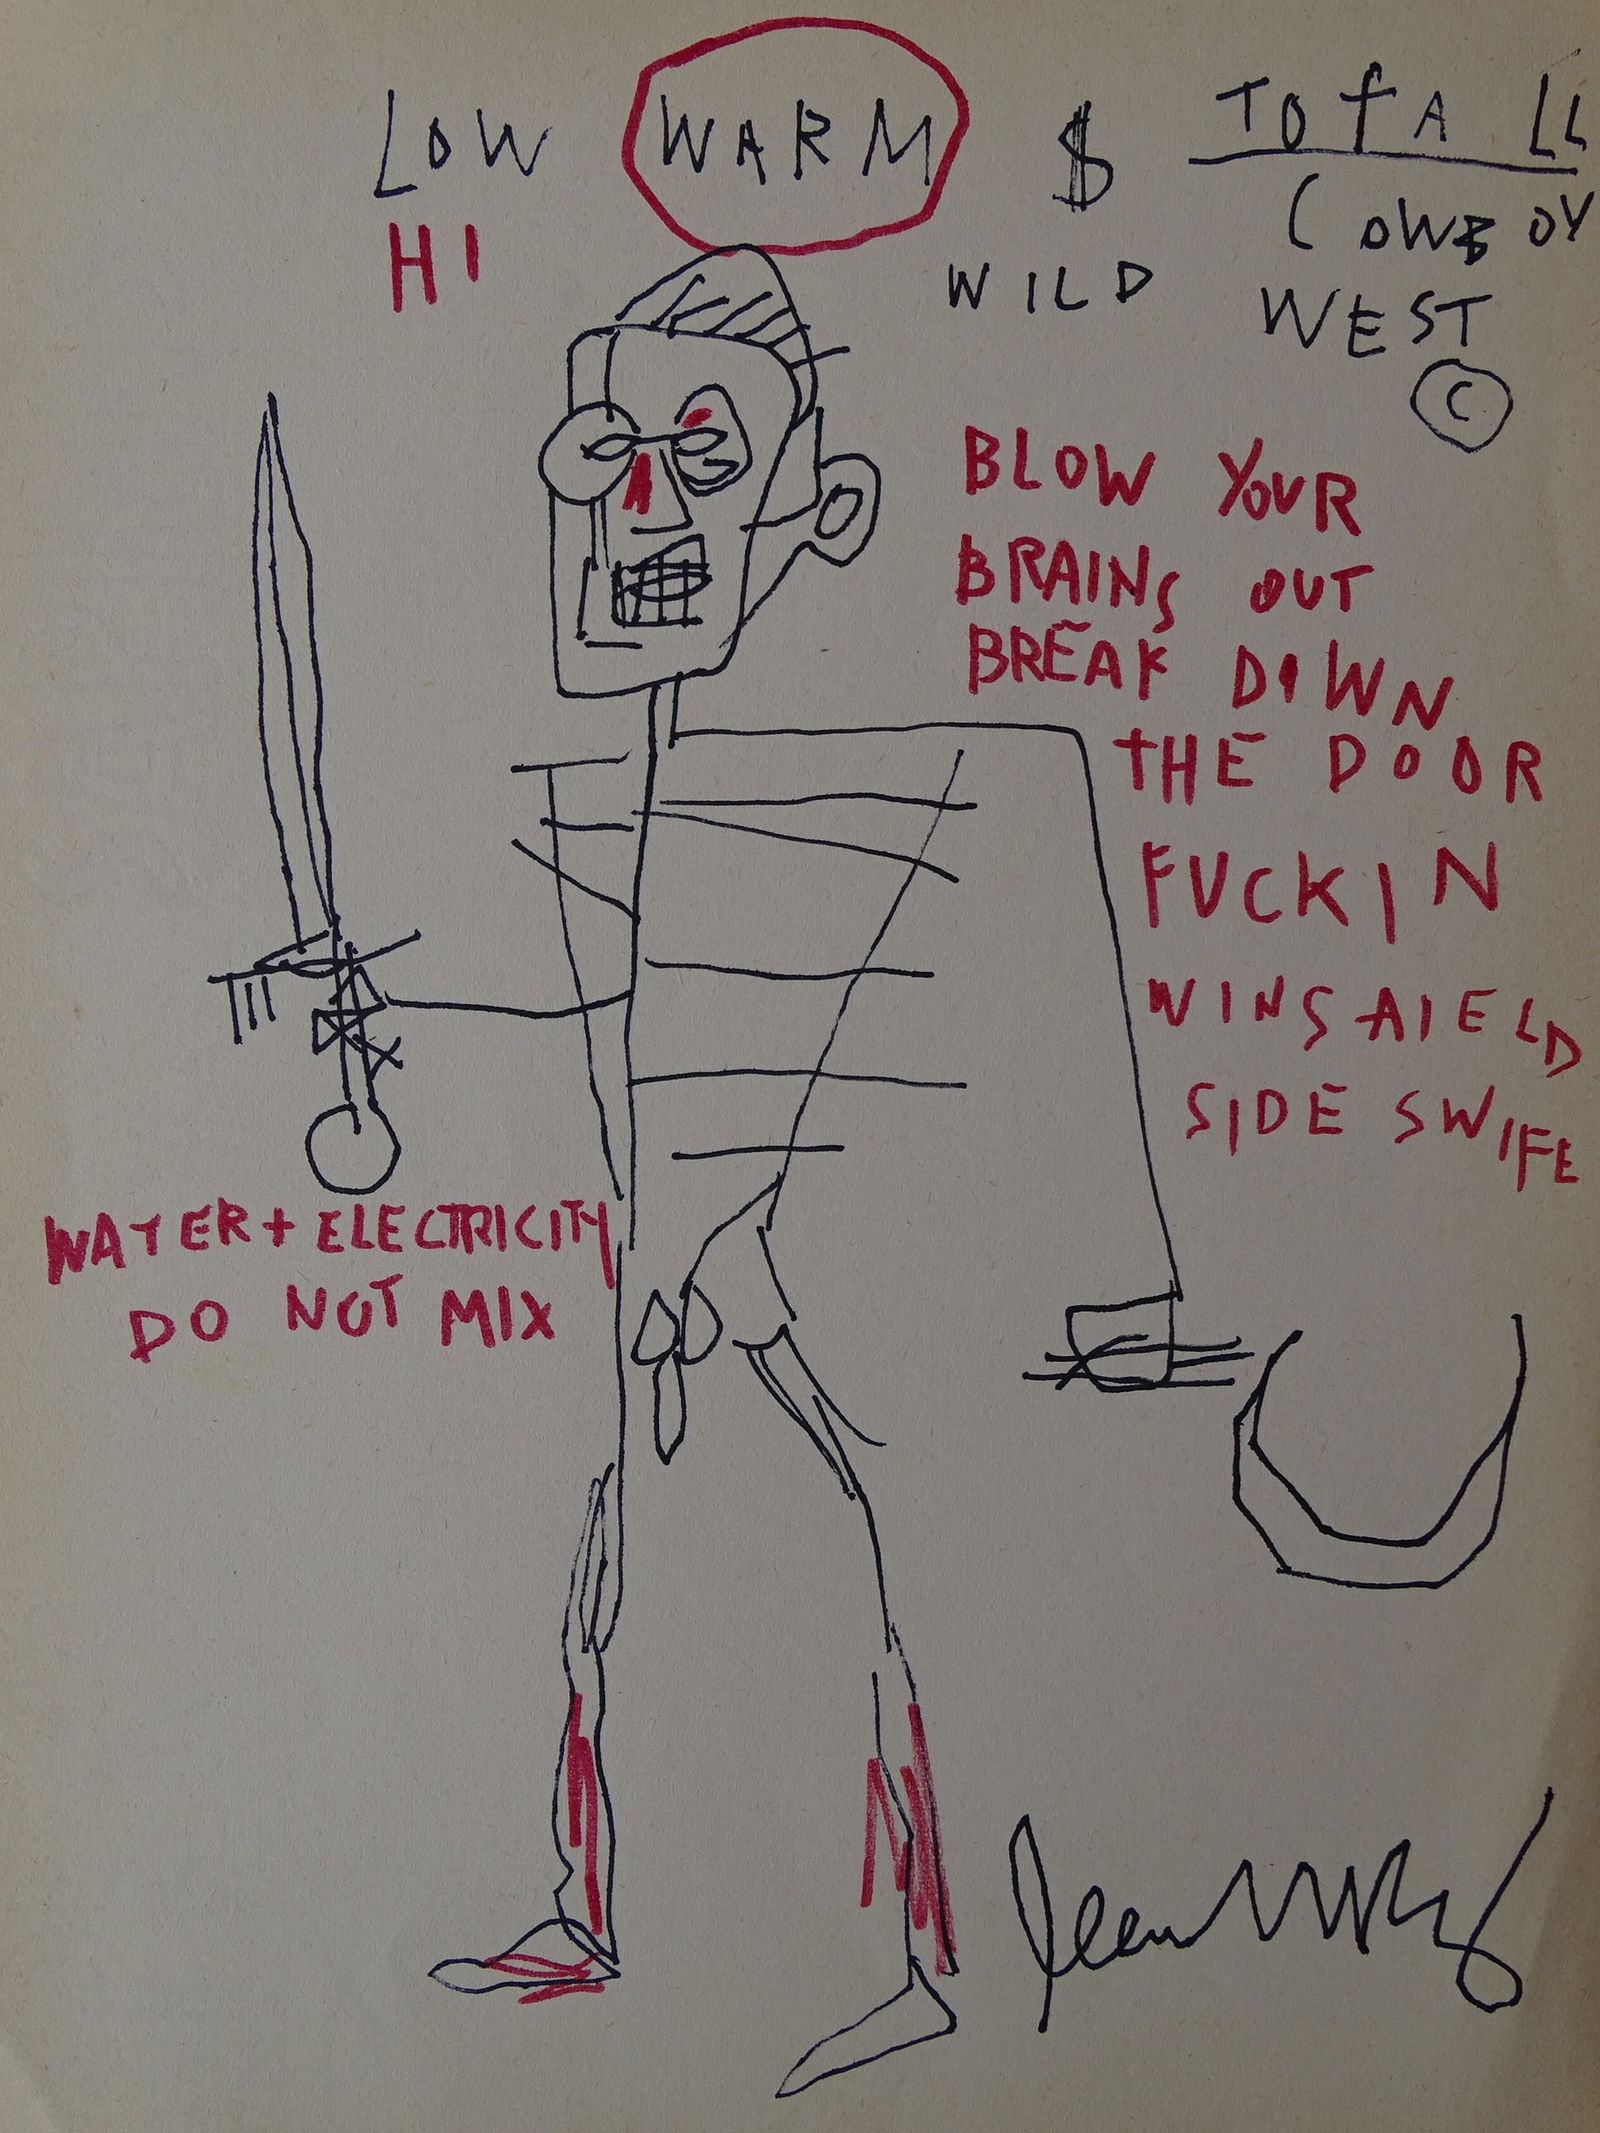 LOW WARM $ TOTALL
HI
COWBOY
WILD WEST
©
BLOW YOUR
BRAINS OUT
BREAK DOWN
THE DOOR
FUCKIN
WINSAIELD
SIDE SWIFE
WATER + ELECTRICITY
DO NOT MIX